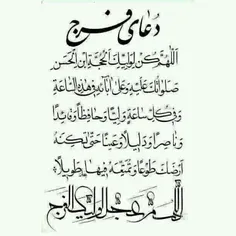 دعای فرج
اَللّهُمَّ كُنْ لِوَلِيِّكَ الْحُجَّةِ ابْنِ الْحَسَنِ
صَلَواتُكَ عَلَيْهِ وَعَلى آبائِهِ فِي هذِهِ السّاعَةِ
وَفي كُلِّ ساعَةٍ وَلِيّاً وَحافِظاً وَقائِداً
وَناصِراً وَدَليلاً وَعَيْناً حَتّى تُسْكِنَهُ
أَرْضَكَ طَوْعاً وَتُمَتِّعَهُ فيها طَويلاً
اللهم عجل لوليك الفرج